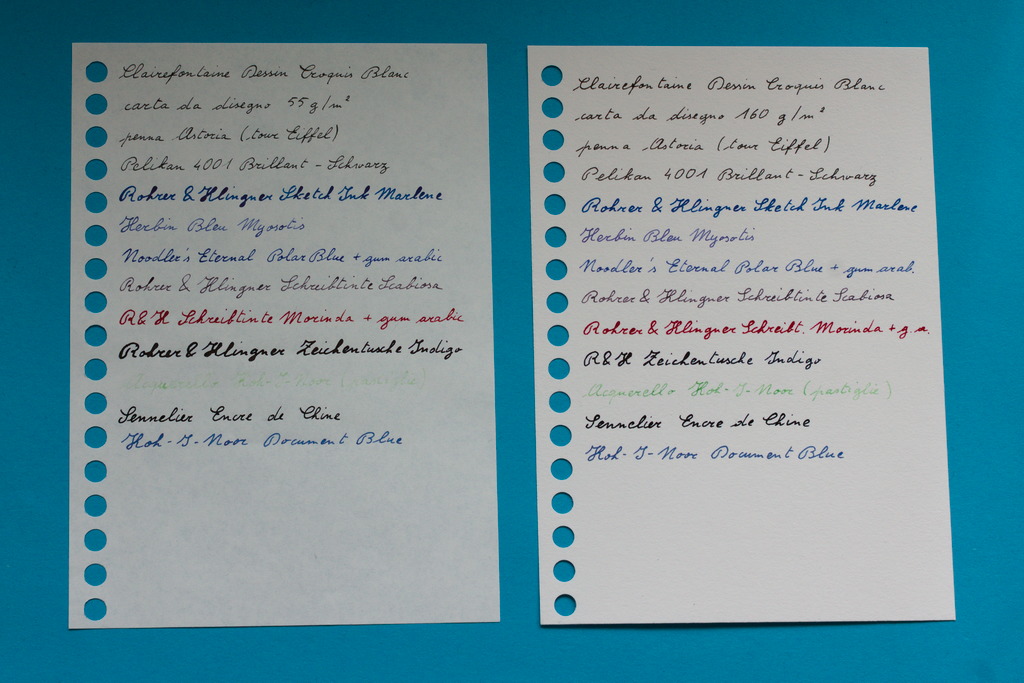 Clairefontaine Dessin Croquis Blanc
carta da disegno 55 g/m²
penna Astoria (tour Eiffel)
Pelikan 4001 Brillant - Schwarz
Rohrer & Klingner Sketch Ink Marlene
Herbin Bleu Myosotis
Noodler's Eternal Polar Blue + gum arabic
Rohrer & Klingner Schreibtinte Scabiosa
R&K Schreibtinte Morinda + gum arabic
Rohrer & Klingner Zeichentusche Indigo
Acquerello Koh-I-Noor (pastiglie)
Sennelier Encre de Chine
Koh-I-Noor Document Blue
Clairefontaine Dessin Croquis Blanc
carta da disegno 160 g/m²
penna Astoria (tour Eiffel)
Pelikan 4001 Brillant - Schwarz
Rohrer & Klingner Sketch Ink Marlene
Herbin Bleu Myosotis
Noodler's Eternal Polar Blue + gum arab.
Rohrer & Klingner Schreibtinte Scabiosa
Rohrer & Klingner Schreibt. Morinda + g. a.
R&K Zeichentusche Indigo
Acquerello Koh-I-Noor (pastiglie)
Sennelier Encre de Chine
Koh-I-Noor Document Blue